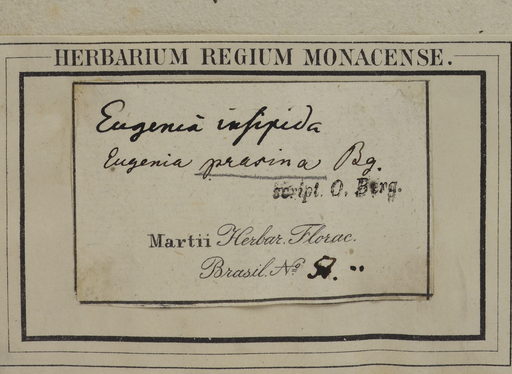 HERBARIUM REGIUM MONACENSE.
Eugenia insipida
Eugenia prasina Bg.
script. O. Berg.
Martii Herbar. Florae.
Brasil. Nº